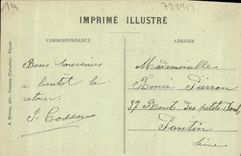 14
IMPRIMÉ ILLUSTRÉ
CORRESPONDANCE
ADRESSE
Bons souvenirs
a bientôt le
retour.
J. Cosson
Mademoiselle
Renée Pierron
37 Rout des petits Ponts
Pantin
Seine